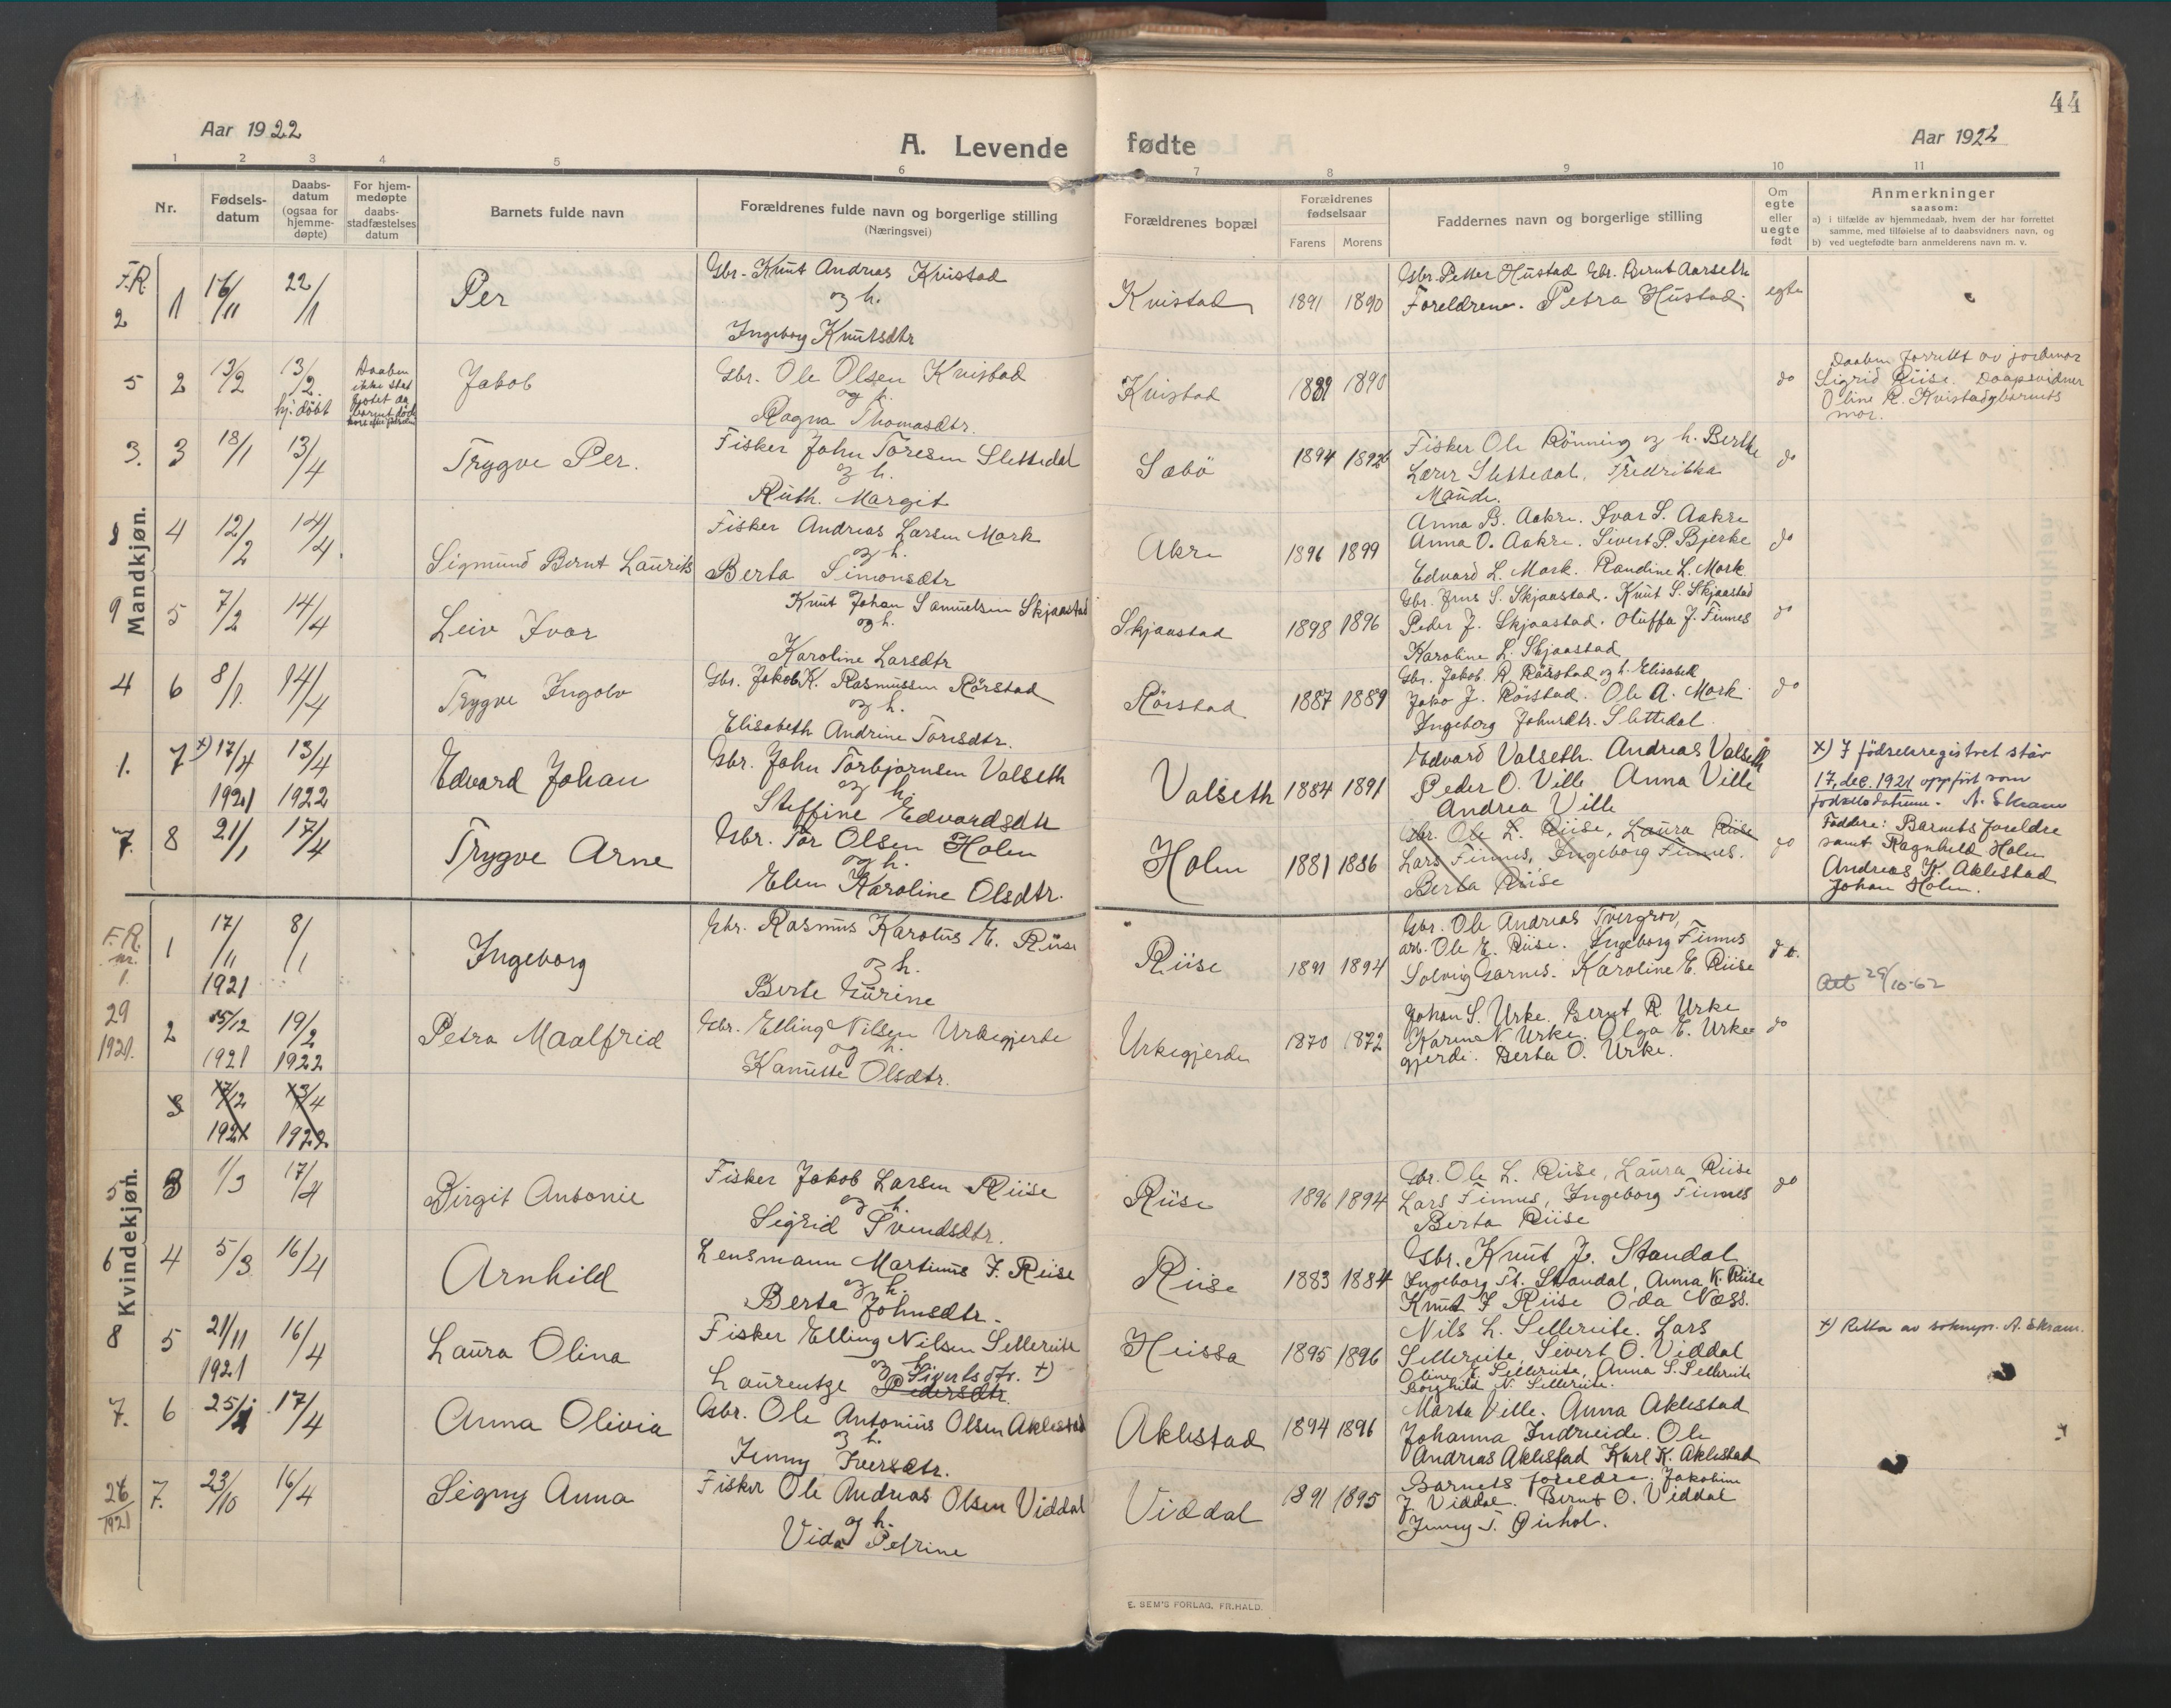 44
Aar 1922
A. Levende fødte
Aar 1922
1 2 3 4 5 6 7 8 9 10 11
Nr.
Fødsels-
datum
Daabs-
datum
(ogsaa for
hjemme-
døpte)
For hjem-
medøpte
daabs-
stadfæstelses
datum
Barnets fulde navn
Forældrenes fulde navn og borgerlige stilling
(Næringsvei)
Forældrenes bopæl
Forældrenes
fødselsaar
Farens Morens
Faddernes navn og borgerlige stilling
Om
egte
eller
uegte
født
Anmerkninger
saasom:
a) i tilfælde av hjemmedaab, hvem der har forrettet
samme, med tilføielse af to daabsvidners navn, og
b) ved uegtefødte barn anmelderens navn m. v.
Mandkjøn.
F.R.
2 1 16/11 22/1
Per
Gbr. Knut Andreas Kvistad
og h.
Ingeborg Knutsdtr
Kvistad 1891 1890
Gbr. Petter Hustad Gbr. Bernt Aarseth
Foreldrene. Petra Hustad.
egte
5 2 13/2 13/2
hj. døbt
Daaben
ikke stad
fæstet da
barnet døde
Jakob
Gbr. Ole Olsen Kvistad
og h.
Ragna Thomasdtr.
Kvistad 1889 1890
do
Daaben forrettet av jordmor
Sigrid Riise. Daapsvidner
Oline R. Kvistad og barnets
mor.
3. 3 18/1 13/4
Trygve Per.
Fisker John Toresen Slettedal
og h.
Ruth. Margit
Sæbö 1894 1892
Fisker Ole Rönning og h. Berthe
Lærer Slettedal, Fredrikka
Maude.
do
4 12/2 14/4
Sigmund Bernt Laurits
Fisker Andreas Larsen Mork
og h.
Berta Simonsdtr
Akre 1896 1899
Anna B. Aakre. Ivar S. Aakre
Anna O. Aakre. Sivert P. Bjerke
Edvard L. Mork. Randine L. Mork
do
9 5 7/2 14/4
Leiv Ivar
Knut Johan Samuelsen Skjaastad
og h.
Karoline Larsdtr
Skjaastad 1898 1896
Gbr. Jens S. Skjaastad. Knut S. Skjaastad
Peder J. Skjaastad. Oluffa J. Finnes
Karoline L. Skjaastad
do
4 6 8/1 14/4
Trygve Ingolv
Gbr. Jakob K. Rasmussen Rörstad
og h.
Elisabeth Andrine Toresdtr.
Rörstad 1887 1889
Gbr. Jakob R. Rörstad og h. Elisabeth
Jako J. Rörstad. Ole A. Mork
Ingeborg Johnsdtr. Slettedal.
do
1. 7 x) 17/4 13/4
1921 1922
Edvard Johan
Gbr. John Torbjørnsen Valseth
og h.
Steffine Edvardsdtr
Valseth 1884 1891
Edvard Valseth. Andreas Valseth
Peder O. Ville Anna Ville
Andrea Ville
x) I födselsregistret står
17. dec. 1921 oppført som
fødselsdatum. A. Skram
7. 8 21/1 17/4
Trygve Arne
Gbr. Tor Olsen Holen
og h.
Elen Karoline Olsdtr.
Holen 1881 1886
Gbr. Ole L. Riise, Laura Riise
Lars Finnes, Ingeborg Finnes.
Berta Riise
do
Faddere: Barnets foreldre
samt Ragnhild Holen
Andreas K. Aklestad
Johan Holen.
Kvindekjøn.
F.R.
nr.
1. 1 17/11 8/1
1921
Ingeborg
Gbr. Rasmus Karolus E. Riise
og h.
Berte Gurine
Riise 1891 1894
Gbr. Ole Andreas Tvergrov,
arb. Ole E. Riise. Ingeborg Finnes
Solvig Garnes. Karoline E. Riise
do.
Att 29/10-62
29
1921. 2 15/12 19/2
1921 1922
Petra Maalfrid
Gbr. Elling Nilsen Urkegjerde
og h.
Kanutte Olsdtr.
Urkegjerde 1870 1872
Johan S. Urke. Bernt R. Urke
Karen N. Urke. Olga E. Urke
gjerde. Berta O. Urke.
do
3 17/12 13/4
1921 1922
5 3 1/3 17/4
Birgit Antonie
Fisker Jakob Larsen Riise
og h.
Sigrid Svendsdtr.
Riise 1896 1894
Gbr. Ole L. Riise, Laura Riise
Lars Finnes, Ingeborg Finnes
Berta Riise
do
6 4 5/3 16/4
Arnhild
Lensmann Martinus J. Riise
og h.
Berte Johnsdtr.
Riise 1883 1884
Gbr. Knut J. Standal
Ingeborg Th. Standal, Anna K. Riise
Knut J Riise Oda Næss.
8 5 21/11 16/4
1921
Laura Olina
Fisker Elling Nilsen Sellereite
og h. Sivertsdtr. +)
Laurentze Pedersdtr.
Heissa 1895 1896
Nils L. Sellereite. Lars
Sellereite, Sivert O. Viddal
Oline E. Sellereite, Anna S. Sellereite
Borghild N. Sellereite.
+) Retta av soknepr. A. Skram.
7. 6 25/1 17/4
Anna Olivia
Gbr. Ole Antonius Olsen Aklestad
og h.
Jenny Iversdtr.
Aklestad 1894 1896
Marta Ville. Anna Aklestad
Johanna Indreeide. Ole
Andreas Aklestad Karl K. Aklestad
26
1921 7. 23/10 16/4
Signy Anna
Fisker Ole Andreas Olsen Viddal
og h.
Vida Petrine
Viddal 1891 1895
Barnets foreldre. Jakobine
J. Viddal. Bernt O. Viddal
Jenny T. Øiehol.
E. SEM'S FORLAG, FR.HALD.